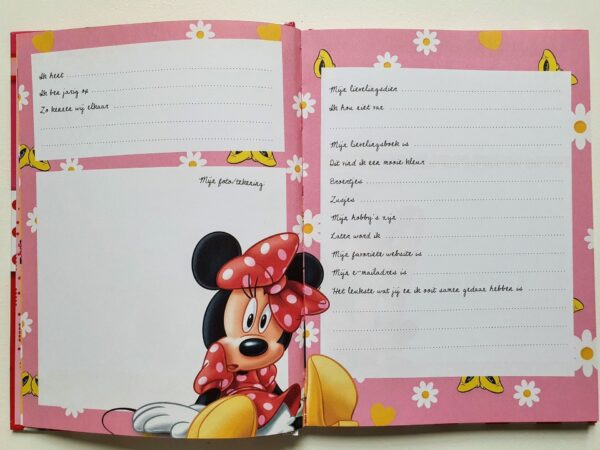 Ik heet
Ik ben jarig op
Zo kennen wij elkaar
Mijn foto/tekening
Mijn lievelingsdier
Ik hou niet van
Mijn lievelingsboek is
Dit vind ik een mooie kleur
Broertjes
Zusjes
Mijn hobby's zijn
Later word ik
Mijn favoriete website is
Mijn e-mailadres is
Het leukste wat jij en ik ooit samen gedaan hebben is